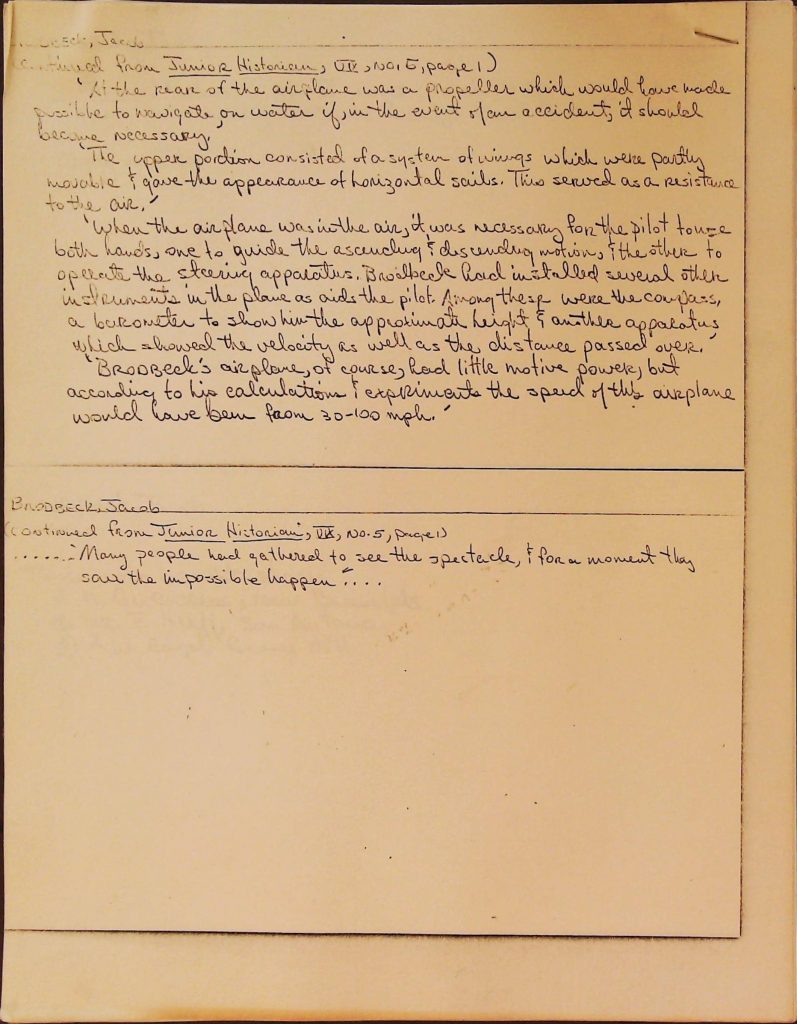 BRODBECK, Jacob
(continued from Junior Historian, VIX, No. 5, page 1)
"At the rear of the airplane was a propeller which would have made
possible to navigate on water if, in the event of an accident, it should
become necessary.
"The upper portion consisted of a system of wings which were partly
movable & gave the appearance of horizontal sails. This served as a resistance
to the air."
"When the airplane was in the air, it was necessary for the pilot to use
both hands, one to guide the ascending & descending motion, & the other to
operate the steering apparatus. Brodbeck had installed several other
instruments in the plane as aids the pilot. Among these were the compass,
a barometer to show him the approximate height & another apparatus
which showed the velocity as well as the distance passed over."
"BRODBECK's airplane, of course, had little motive power, but
according to his calculations & experiments the speed of this airplane
would have been from 30-100 mph."
BRODBECK, Jacob
(continued from Junior Historian, VIX, No. 5, page 1)
......"Many people had gathered to see the spectacle, & for a moment they
saw the impossible happen"....